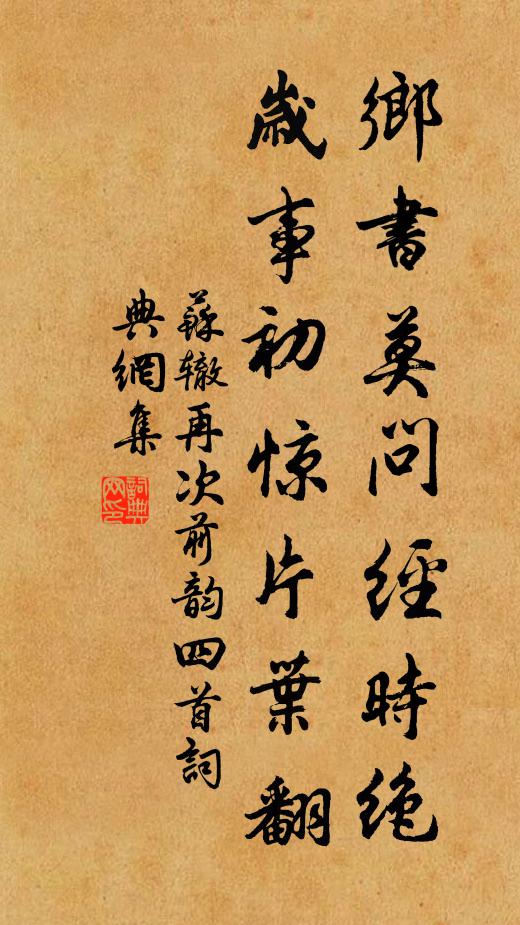 鄉書莫問經時絶
歲事初惊片葉翻
蘇辙再次前韵四首詞
典網集
詞典
网印